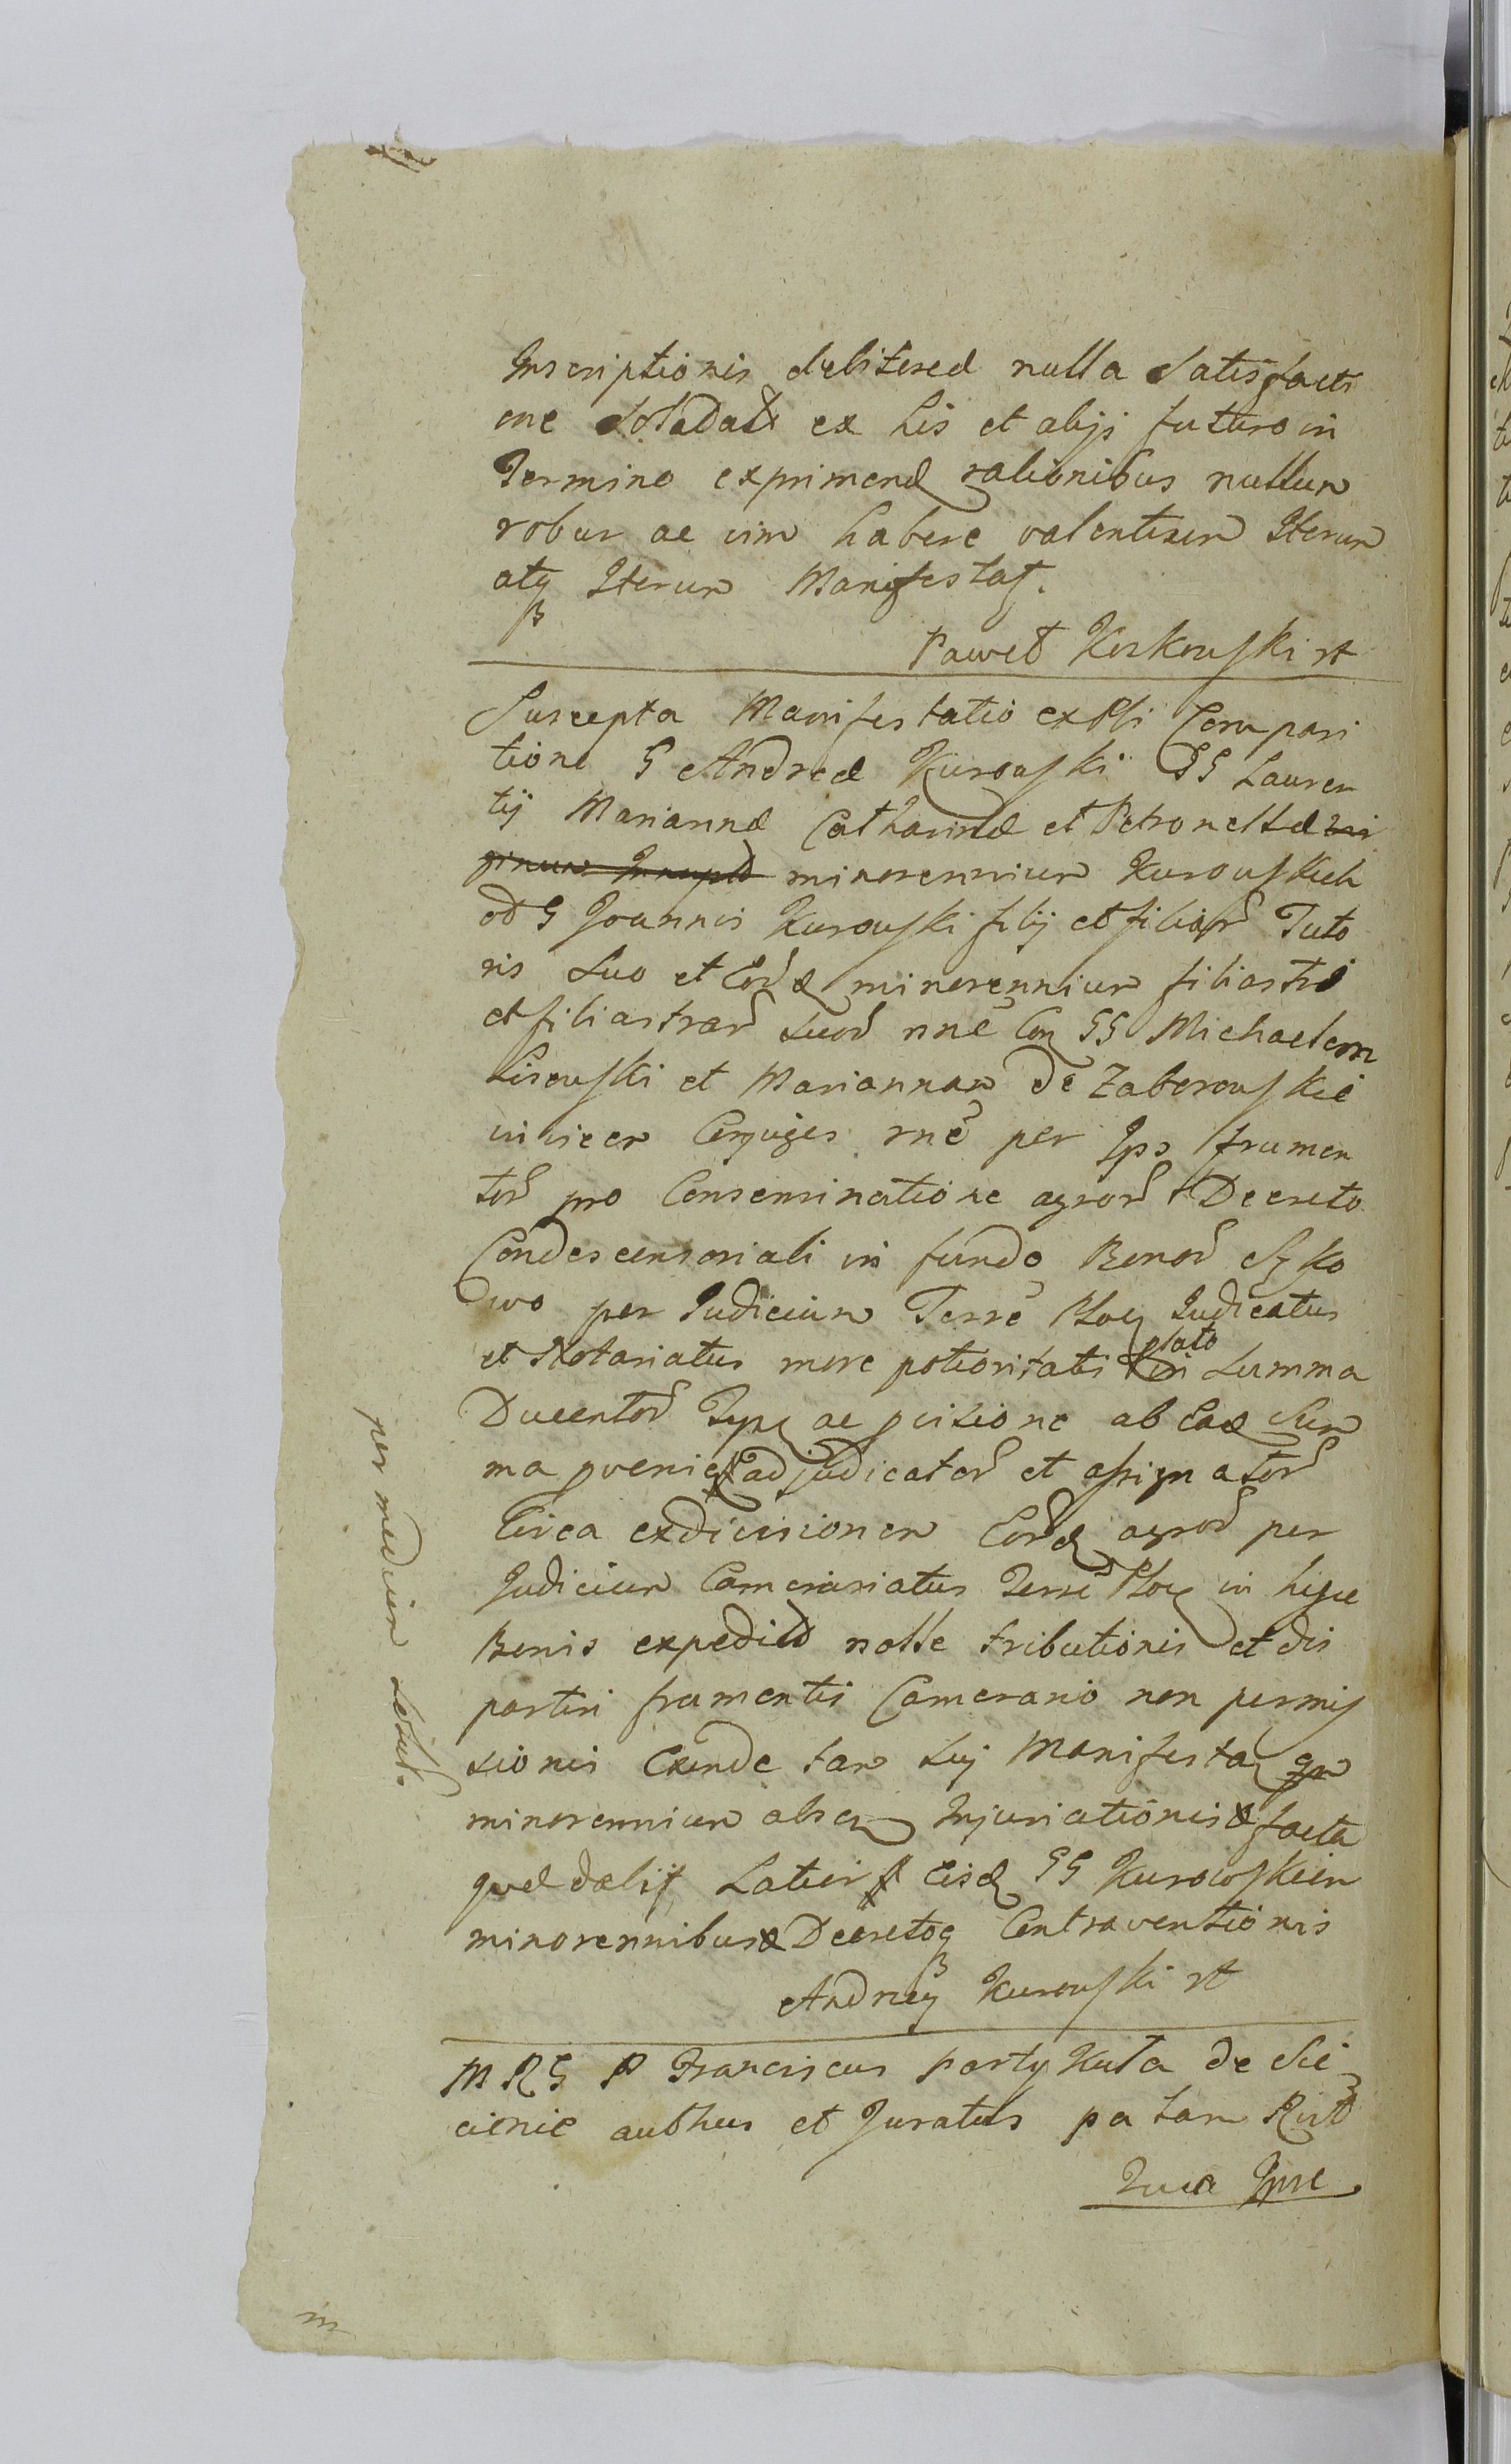 Inscriptionis debitoreæ nulla Satisfacti
one ex his et alijs futuro in
Termino exprimend rationibus nullum
robur ac vim habere valentium Iterum
atq Iterum Manifestat.
Paweł Kosk
Suscepta Manifestatio ex Psli Compari
tione G Andreæ Kurowski GG Lauren
tij Mariannæ Catharinæ et Petronellæ
minorennium Kurowskich
G Joannis Kurowski filij et filiar Tuto
ris Suo et Eord minorennium filiastri
et filiastrar suor nne Con GG Michaelem
Lisowski et Mariannam de Zaborowskie
invicem Conjuges rne per Ips frumen
tor pro Conseminatione agror Decreto
Condescensoriali in fundo Bonor
wo per Judicium Terre Ploc Judicatus
et Notariatus more potioritatis lato in Summa
Ducentor Tynf ac visione ab Ead Sum
ma adjudicator et assignator
Circa exdivisionem Eord agror per
Judicium Camerariatus Terre Ploc in hisce
Bonis expedit nolle tributionis et dis
partiri frumentis Camerario non permis
sionis Exinde tam sui Manifestan qm
minorennium absq Injuriationis facta
Latur Eisd GG Kurowskim
minorennibus Decretoq Contraventionis
Andrzey Kurowski
M R G Franciscus Partykuła de Sie
cienie authus et Juratus palam Rict
Quia Ipse
per medium